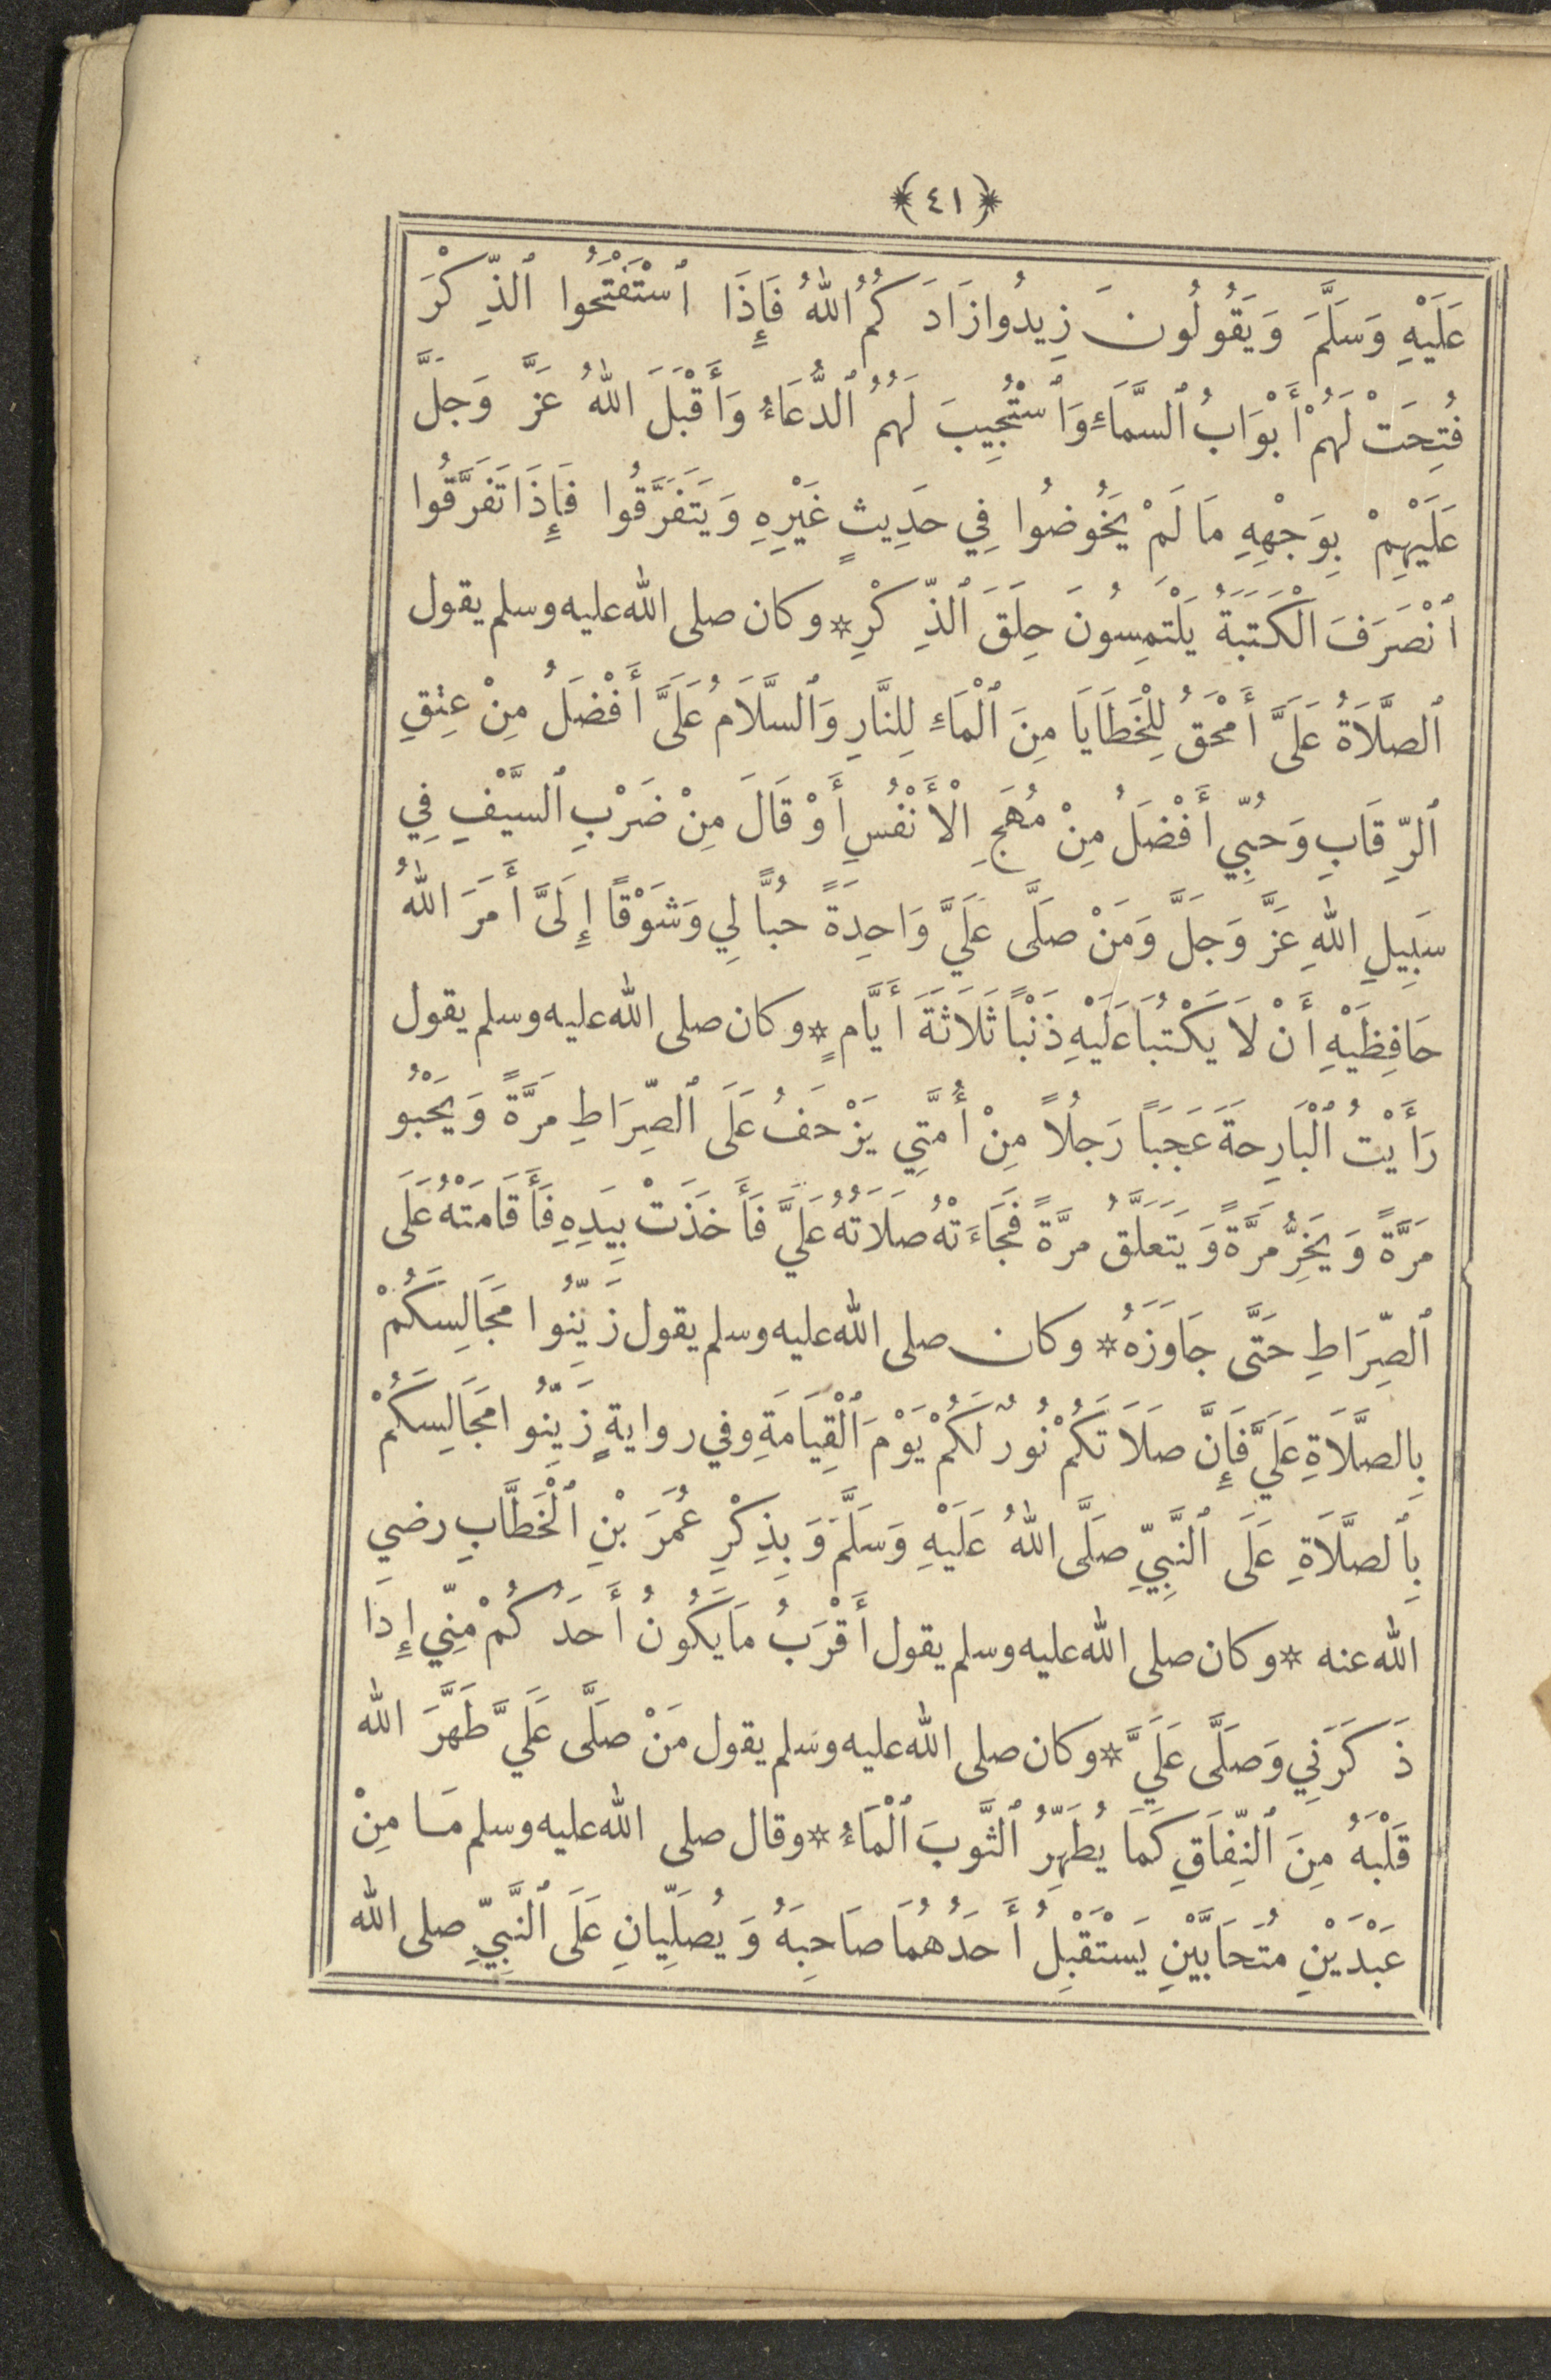 ﴿٤١﴾
عَلَيْهِ وَسَلَّمَ وَيَقُولُونَ زِيدُوا زَادَكُمُ اللهُ فَإِذَا ٱسْتَفْتَحُوا ٱلذِّكْرَ
فُتِحَتْ لَهُمْ أَبْوَابُ ٱلسَّمَاءِ وَٱسْتُجِيبَ لَهُمُ ٱلدُّعَاءُ وَأَقْبَلَ اللهُ عَزَّ وَجَلَّ
عَلَيْهِمْ بِوَجْهِهِ مَا لَمْ يَخُوضُوا فِي حَدِيثٍ غَيْرِهِ وَيَتَفَرَّقُوا فَإِذَا تَفَرَّقُوا
ٱنْصَرَفَ الْكَتَبَةُ يَلْتَمِسُونَ حِلَقَ ٱلذِّكْرِ * وكان صلى الله عليه وسلم يقول
ٱلصَّلَاةُ عَلَيَّ أَمْحَقُ لِلْخَطَايَا مِنَ ٱلْمَاءِ لِلنَّارِ وَٱلسَّلَامُ عَلَيَّ أَفْضَلُ مِنْ عِتْقِ
ٱلرِّقَابِ وَحُبِّي أَفْضَلُ مِنْ مُهَجِ الْأَنْفُسِ أَوْ قَالَ مِنْ ضَرْبِ ٱلسَّيْفِ فِي
سَبِيلِ اللهِ عَزَّ وَجَلَّ وَمَنْ صَلَّى عَلَيَّ وَاحِدَةً حُبًّا لِي وَشَوْقًا إِلَيَّ أَمَرَ اللهُ
حَافِظَيْهِ أَنْ لَا يَكْتُبَا عَلَيْهِ ذَنْبًا ثَلَاثَةَ أَيَّامٍ * وكان صلى الله عليه وسلم يقول
رَأَيْتُ ٱلْبَارِحَةَ عَجَبًا رَجُلًا مِنْ أُمَّتِي يَزْحَفُ عَلَى ٱلصِّرَاطِ مَرَّةً وَيَحْبُو
مَرَّةً وَيَخِرُّ مَرَّةً وَيَتَعَلَّقُ مَرَّةً فَجَاءَتْهُ صَلَاتُهُ عَلَيَّ فَأَخَذَتْ بِيَدِهِ فَأَقَامَتْهُ عَلَى
ٱلصِّرَاطِ حَتَّى جَاوَزَهُ * وكان صلى الله عليه وسلم يقول زَيِّنُوا مَجَالِسَكُمْ
بِالصَّلَاةِ عَلَيَّ فَإِنَّ صَلَاتَكُمْ نُورٌ لَكُمْ يَوْمَ ٱلْقِيَامَةِ وفي روايةٍ زَيِّنُوا مَجَالِسَكُمْ
بِٱلصَّلَاةِ عَلَى ٱلنَّبِيِّ صَلَّى اللهُ عَلَيْهِ وَسَلَّمَ وَبِذِكْرِ عُمَرَ بْنِ ٱلْخَطَّابِ رضي
الله عنه * وكان صلى الله عليه وسلم يقول أَقْرَبُ مَا يَكُونُ أَحَدُكُمْ مِنِّي إِذَا
ذَكَرَنِي وَصَلَّى عَلَيَّ * وكان صلى الله عليه وسلم يقول مَنْ صَلَّى عَلَيَّ طَهَّرَ الله
قَلْبَهُ مِنَ ٱلنِّفَاقِ كَمَا يُطَهِّرُ ٱلثَّوْبَ ٱلْمَاءُ * وقال صلى الله عليه وسلم مَا مِنْ
عَبْدَيْنِ مُتَحَابَّيْنِ يَسْتَقْبِلُ أَحَدُهُمَا صَاحِبَهُ وَيُصَلِّيَانِ عَلَى ٱلنَّبِيِّ صلى الله